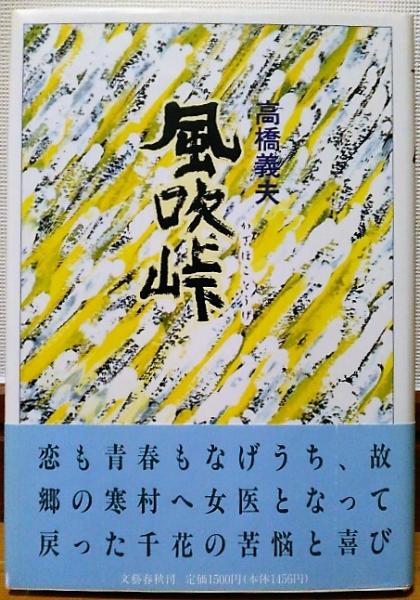 高橋義夫
風吹峠
恋も青春もなげうち、故
郷の寒村へ女医となって
戻った千花の苦悩と喜び
文藝春秋刊 定価1500円(本体1456円)